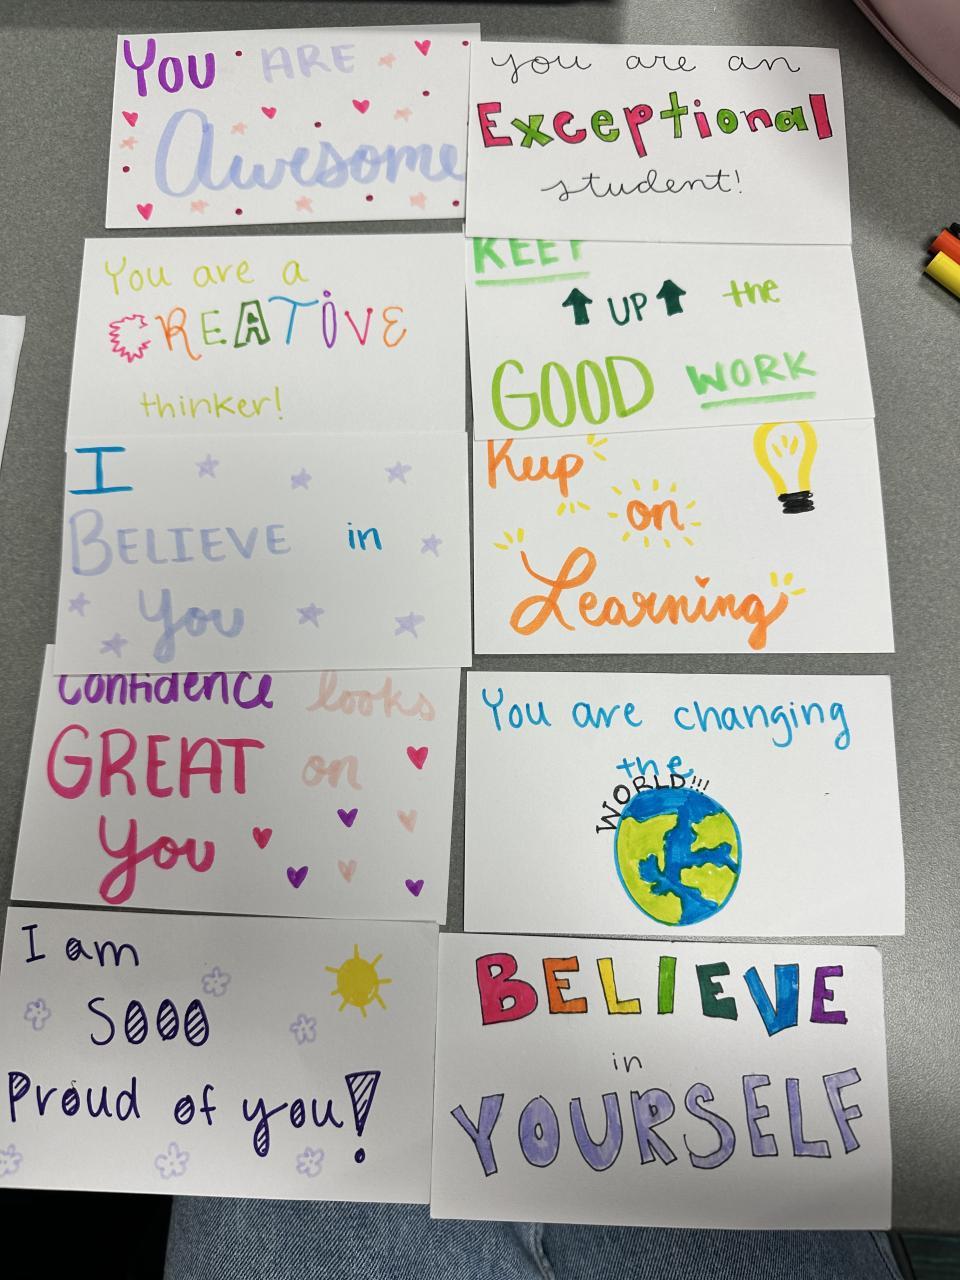 You ARE
Awesome
you are an
Exceptional
student!
You are a
CREATIVE
thinker!
KEEP
UP the
GOOD WORK
I
BELIEVE in
You
Keep
on
Learning
Confidence looks
GREAT on
You
You are changing
the
WORLD!!!
I am
SOOO
Proud of you!
BELIEVE
in
YOURSELF